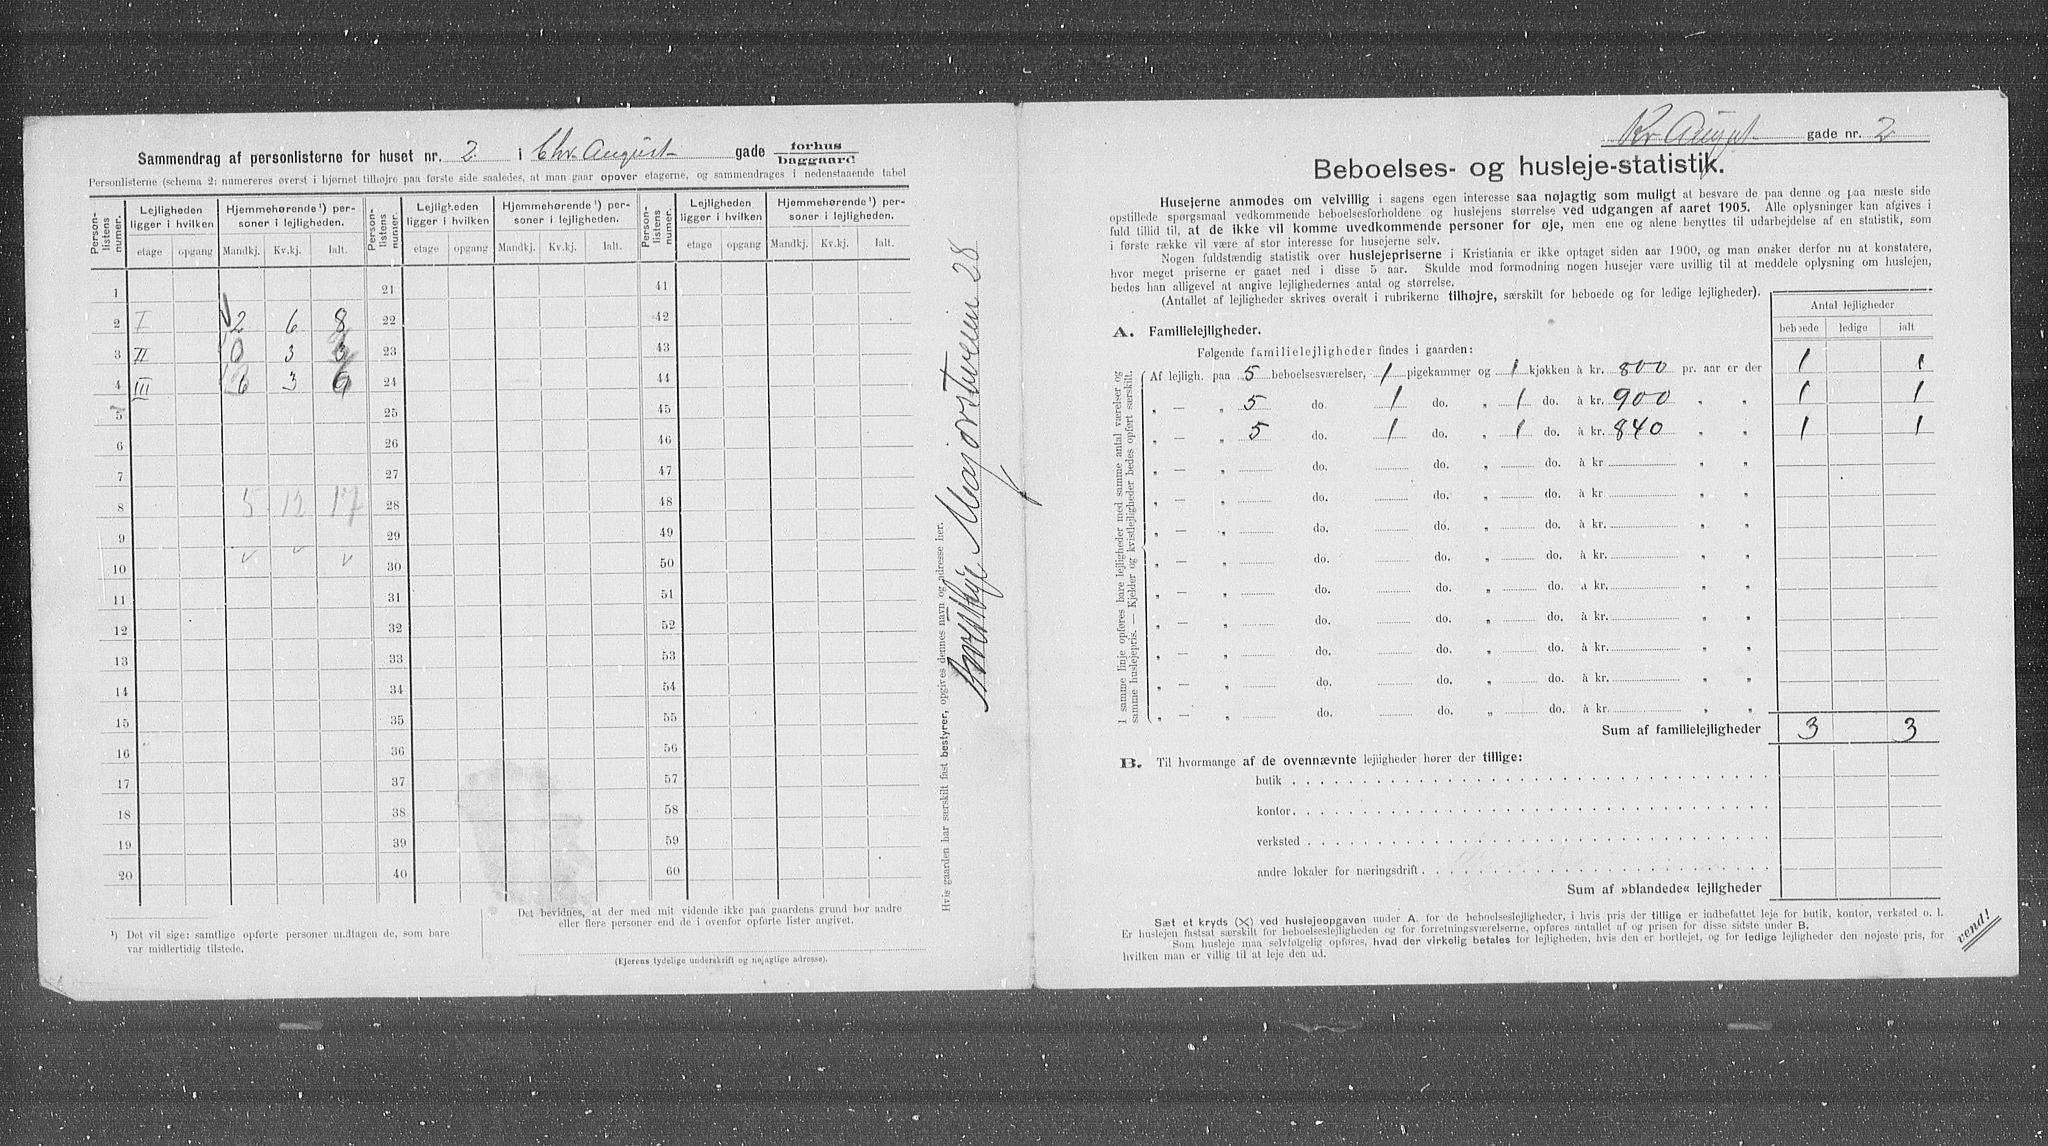 Sammendrag af personlisterne for huset nr. 2 i Chr. August gade forhus baggaard
Personlisterne (schema 2; numereres øverst i hjørnet tilhøjre paa første side saaledes, at man gaar opover etagerne, og sammendrages i nedenstaaende tabel
Person-listens numer. Lejligheden ligger i hvilken Hjemmehørende ¹) personer i lejligheden. Person-listens numer. Lejligheden ligger i hvilken Hjemmehørende ¹) personer i lejligheden. Person-listens numer. Lejligheden ligger i hvilken Hjemmehørende ¹) personer i lejligheden.
etage opgang Mandkj. Kv.kj. Ialt. etage opgang Mandkj. Kv.kj. Ialt. etage opgang Mandkj. Kv.kj. Ialt.
1 21 41
2 I 2 6 8 22 42
3 II 0 3 3 23 43
4 III 3 24 44
5 25 45
6 26 46
7 27 47
8 5 12 17 28 48
9 29 49
10 30 50
11 31 51
12 32 52
13 33 53
14 34 54
15 35 55
16 36 56
17 37 57
18 38 58
19 39 59
20 40 60
¹) Det vil sige: samtlige opførte personer undtagen de, som bare
var midlertidig tilstede.
Det bevidnes, at der med mit vidende ikke paa gaardens grund bor andre
eller flere personer end de i ovenfor opførte lister angivet.
(Ejerens tydelige underskrift og nøjagtige adresse).
Hvis gaarden har særskilt fast bestyrer, opgives dennes navn og adresse her.
Majorstuveien 28
Kr. August gade nr. 2
Beboelses- og husleje-statistik.
Husejerne anmodes om velvillig i sagens egen interesse saa nøjagtig som muligt at besvare de paa denne og paa næste side
opstillede spørgsmaal vedkommende beboelsesforholdene og huslejens størrelse ved udgangen af aaret 1905. Alle oplysninger kan afgives i
fuld tillid til, at de ikke vil komme uvedkommende personer for øje, men ene og alene benyttes til udarbejdelse af en statistik, som
i første række vil være af stor interesse for husejerne selv.
Nogen fuldstændig statistik over huslejepriserne i Kristiania er ikke optaget siden aar 1900, og man ønsker derfor nu at konstatere,
hvor meget priserne er gaaet ned i disse 5 aar. Skulde mod formodning nogen husejer være uvillig til at meddele oplysning om huslejen,
bedes han alligevel at angive lejlighedernes antal og størrelse.
(Antallet af lejligheder skrives overalt i rubrikerne tilhøjre, særskilt for beboede og for ledige lejligheder).
Antal lejligheder
beboede ledige ialt
A. Familielejligheder.
Følgende familielejligheder findes i gaarden:
I samme linje opføres bare lejligheder med samme antal værelser og
samme huslejepris. — Kjelder og kvistlejligheder bedes opført særskilt.
Af lejligh. paa 5 beboelsesværelser, 1 pigekammer og 1 kjøkken à kr. 800 pr. aar er der 1 1
„ — „ 5 do. 1 do. „ 1 do. à kr. 900 „ „ 1 1
„ — „ 5 do. 1 do. „ 1 do. à kr. 840 „ „ 1 1
„ — „ do. do. „ do. à kr. „ „
„ — „ do. do. „ do. à kr. „ „
„ — „ do. do. „ do. à kr. „ „
„ — „ do. do. „ do. à kr. „ „
„ — „ do. do. „ do. à kr. „ „
„ — „ do. do. „ do. à kr. „ „
„ — „ do. do. „ do. à kr. „ „
„ — „ do. do. „ do. à kr. „ „
„ — „ do. do. „ do. à kr. „ „
Sum af familielejligheder 3 3
B. Til hvormange af de ovennævnte lejligheder hører der tillige:
butik
kontor
verksted
andre lokaler for næringsdrift
Sum af »blandede« lejligheder
Sæt et kryds (X) ved huslejeopgaven under A. for de beboelseslejligheder, i hvis pris der tillige er indbefattet leje for butik, kontor, verksted o. l.
Er huslejen fastsat særskilt for beboelseslejligheden og for forretningsværelserne, opføres antallet af og prisen for disse sidste under B.
Som husleje maa selvfølgelig opføres, hvad der virkelig betales for lejligheden, hvis den er bortlejet, og for ledige lejligheder den nøjeste pris, for
hvilken man er villig til at leje den ud.
vend!